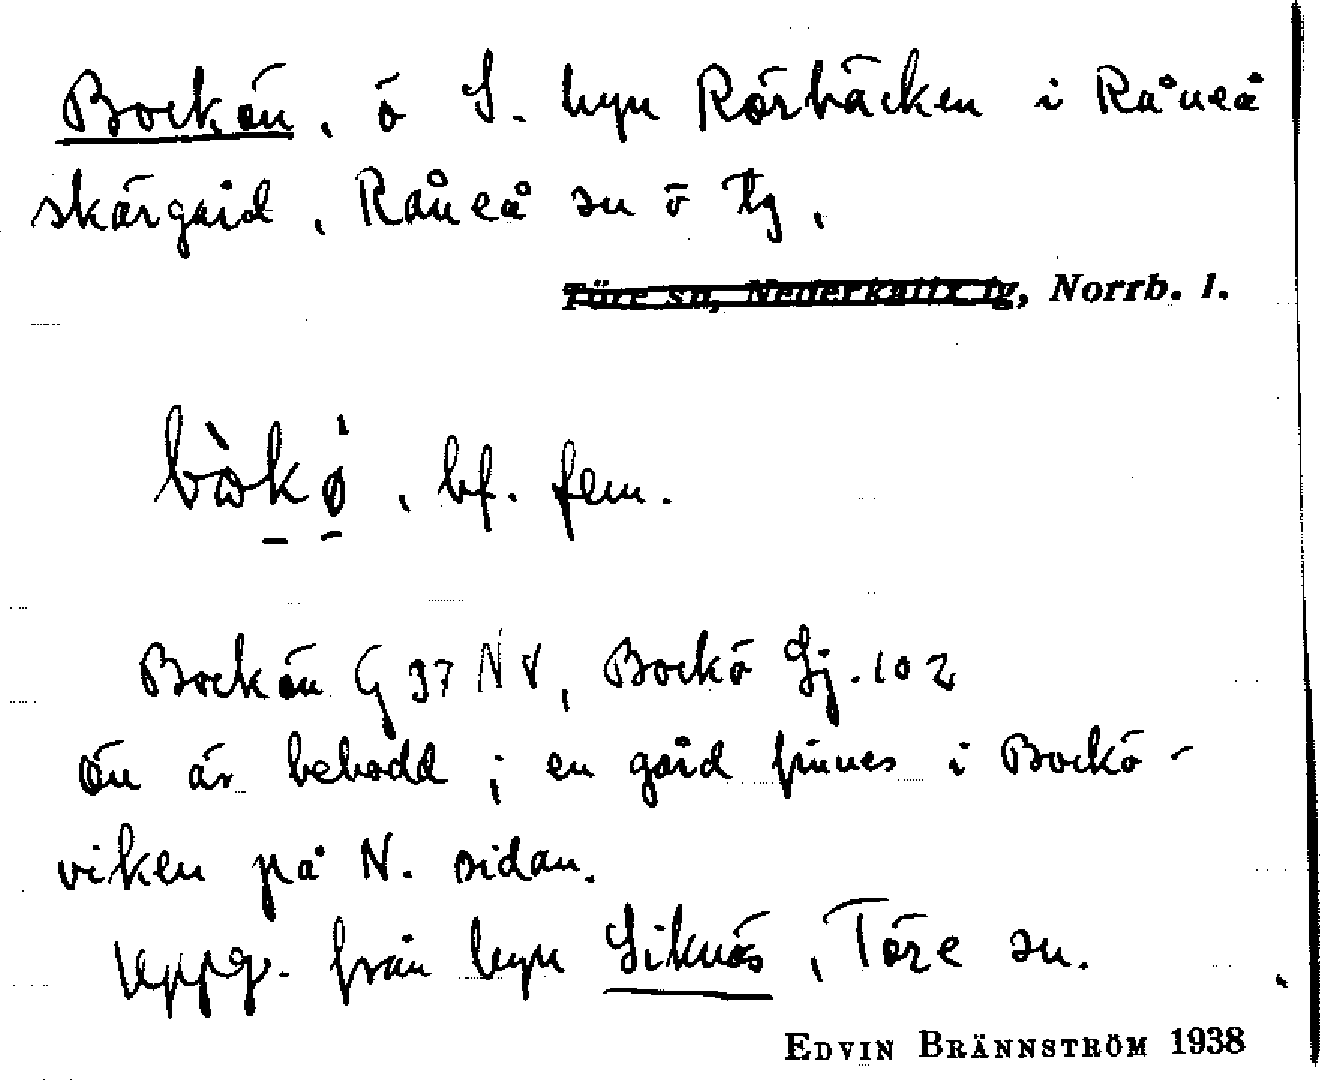 Bockön, ö S. byn Rörbäcken i Råneå
skärgård, Råneå sn o tg,
Töre sn, Nederkalix tg, Norrb. l.
bf. fem.
Bockön G 37 NV, Bockö Sj. 102
Ön är bebodd; en gård finnes i Bockö-
viken på N. sidan.
Uppg. från byn Siknäs, Töre sn.
EDVIN BRÄNNSTRÖM 1938